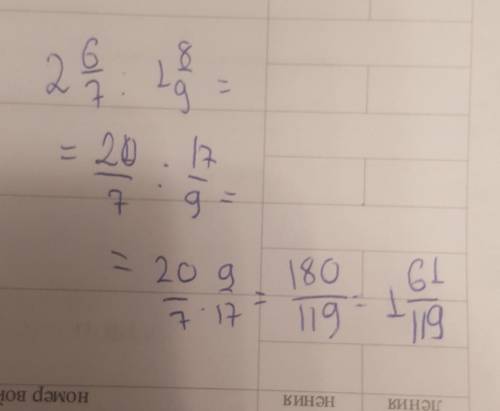 2 6/7 : 1 8/9 =
= 20/7 : 17/9 =
= 20/7 · 9/17 = 180/119 = 1 61/119
номер вой
нения
ления